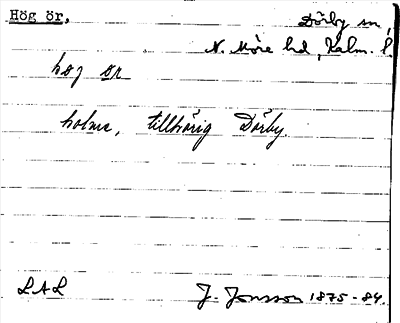 Hög ör.
Dörby sn,
N. Möre hd, Kalm. l.
hög ör
holme, tillhörig Dörby.
LAL
J. Jonsson 1875-84.